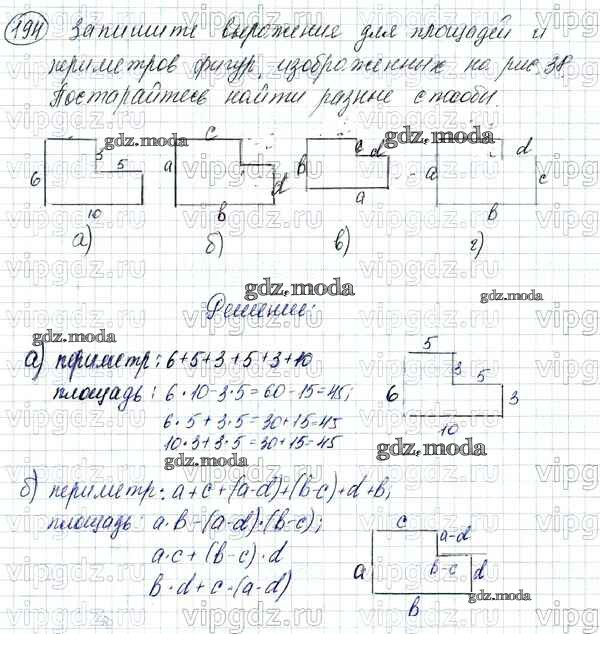 194 Запишите выражение для площадей и
периметров фигур, изображенных на рис. 38.
Постарайтесь найти разные способы.
gdz.moda
gdz.moda
6 3 5 10
a c d b
b c d a
a d c b
а) б) в) г)
gdz.moda
gdz.moda
Решение:
gdz.moda
а) периметр: 6+5+3+5+3+10
площадь: 6·10-3·5=60-15=45;
6·5+3·5=30+15=45
10·3+3·5=30+15=45
5
3
5
6
3
10
gdz.moda
б) периметр: a+c+(a-d)+(b-c)+d+b;
площадь: a·b-(a-d)·(b-c);
a·c+(b-c)·d
b·d+c·(a-d)
c
a-d
b-c
a
d
b
gdz.moda
vipgdz.ru